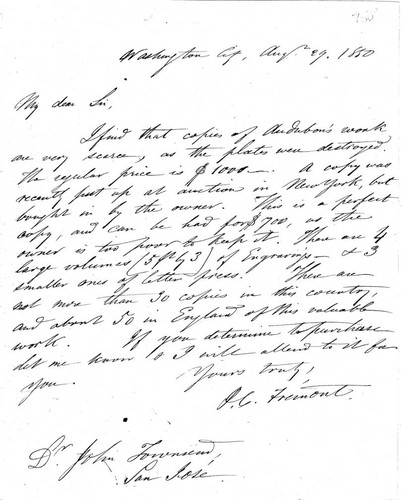 Washington City, Aug. 29. 1850
My dear Sir,
I find that copies of Audubon's work
are very scarce, as the plates were destroyed.
The regular price is $1000—. A copy was
recently put up at auction in New York, but
bought in by the owner. This is a perfect
copy, and can be had for $700, as the
owner is too poor to keep it. There are 4
large volumes (5 ft by 3) of Engravings & 3
smaller ones of letter press. There are
not more than 30 copies in this country,
and about 50 in England of this valuable
work. If you determine to purchase
let me know & I will attend to it for
you. Yours truly,
J. C. Frémont.
Dr John Townsend,
San José.